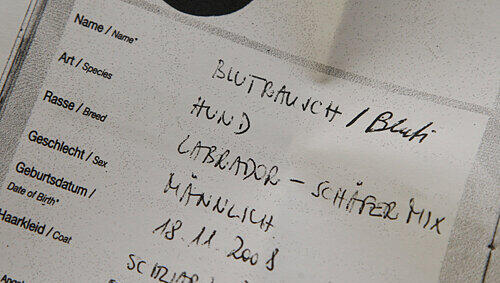 Name / Name* BLUTRAUSCH / Bluti
Art / Species HUND
Rasse / Breed LABRADOR – SCHÄFER MIX
Geschlecht / Sex MÄNNLICH
Geburtsdatum / 18.11.2008
Date of Birth*
Haarkleid / Coat